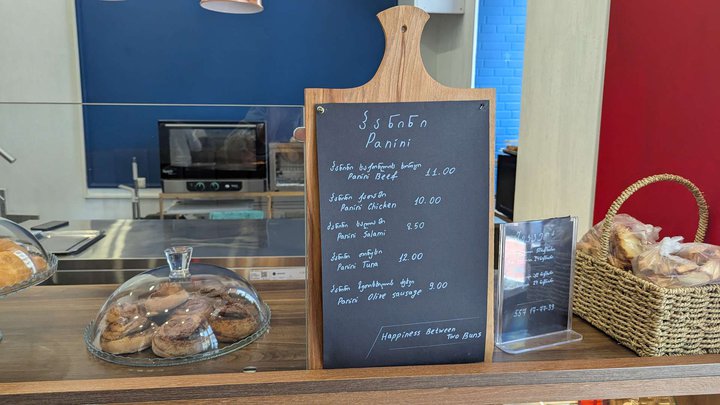 პანინი
Panini
პანინი საქონლის ხორცი
Panini Beef 11.00
პანინი ქათამი
Panini Chicken 10.00
პანინი სალიამი
Panini Salami 8.50
პანინი თინუსი
Panini Tuna 12.00
პანინი ზეთისხილის ძეხვი
Panini Olive sausage 9.00
Happiness Between
Two Buns
557 17-22-33